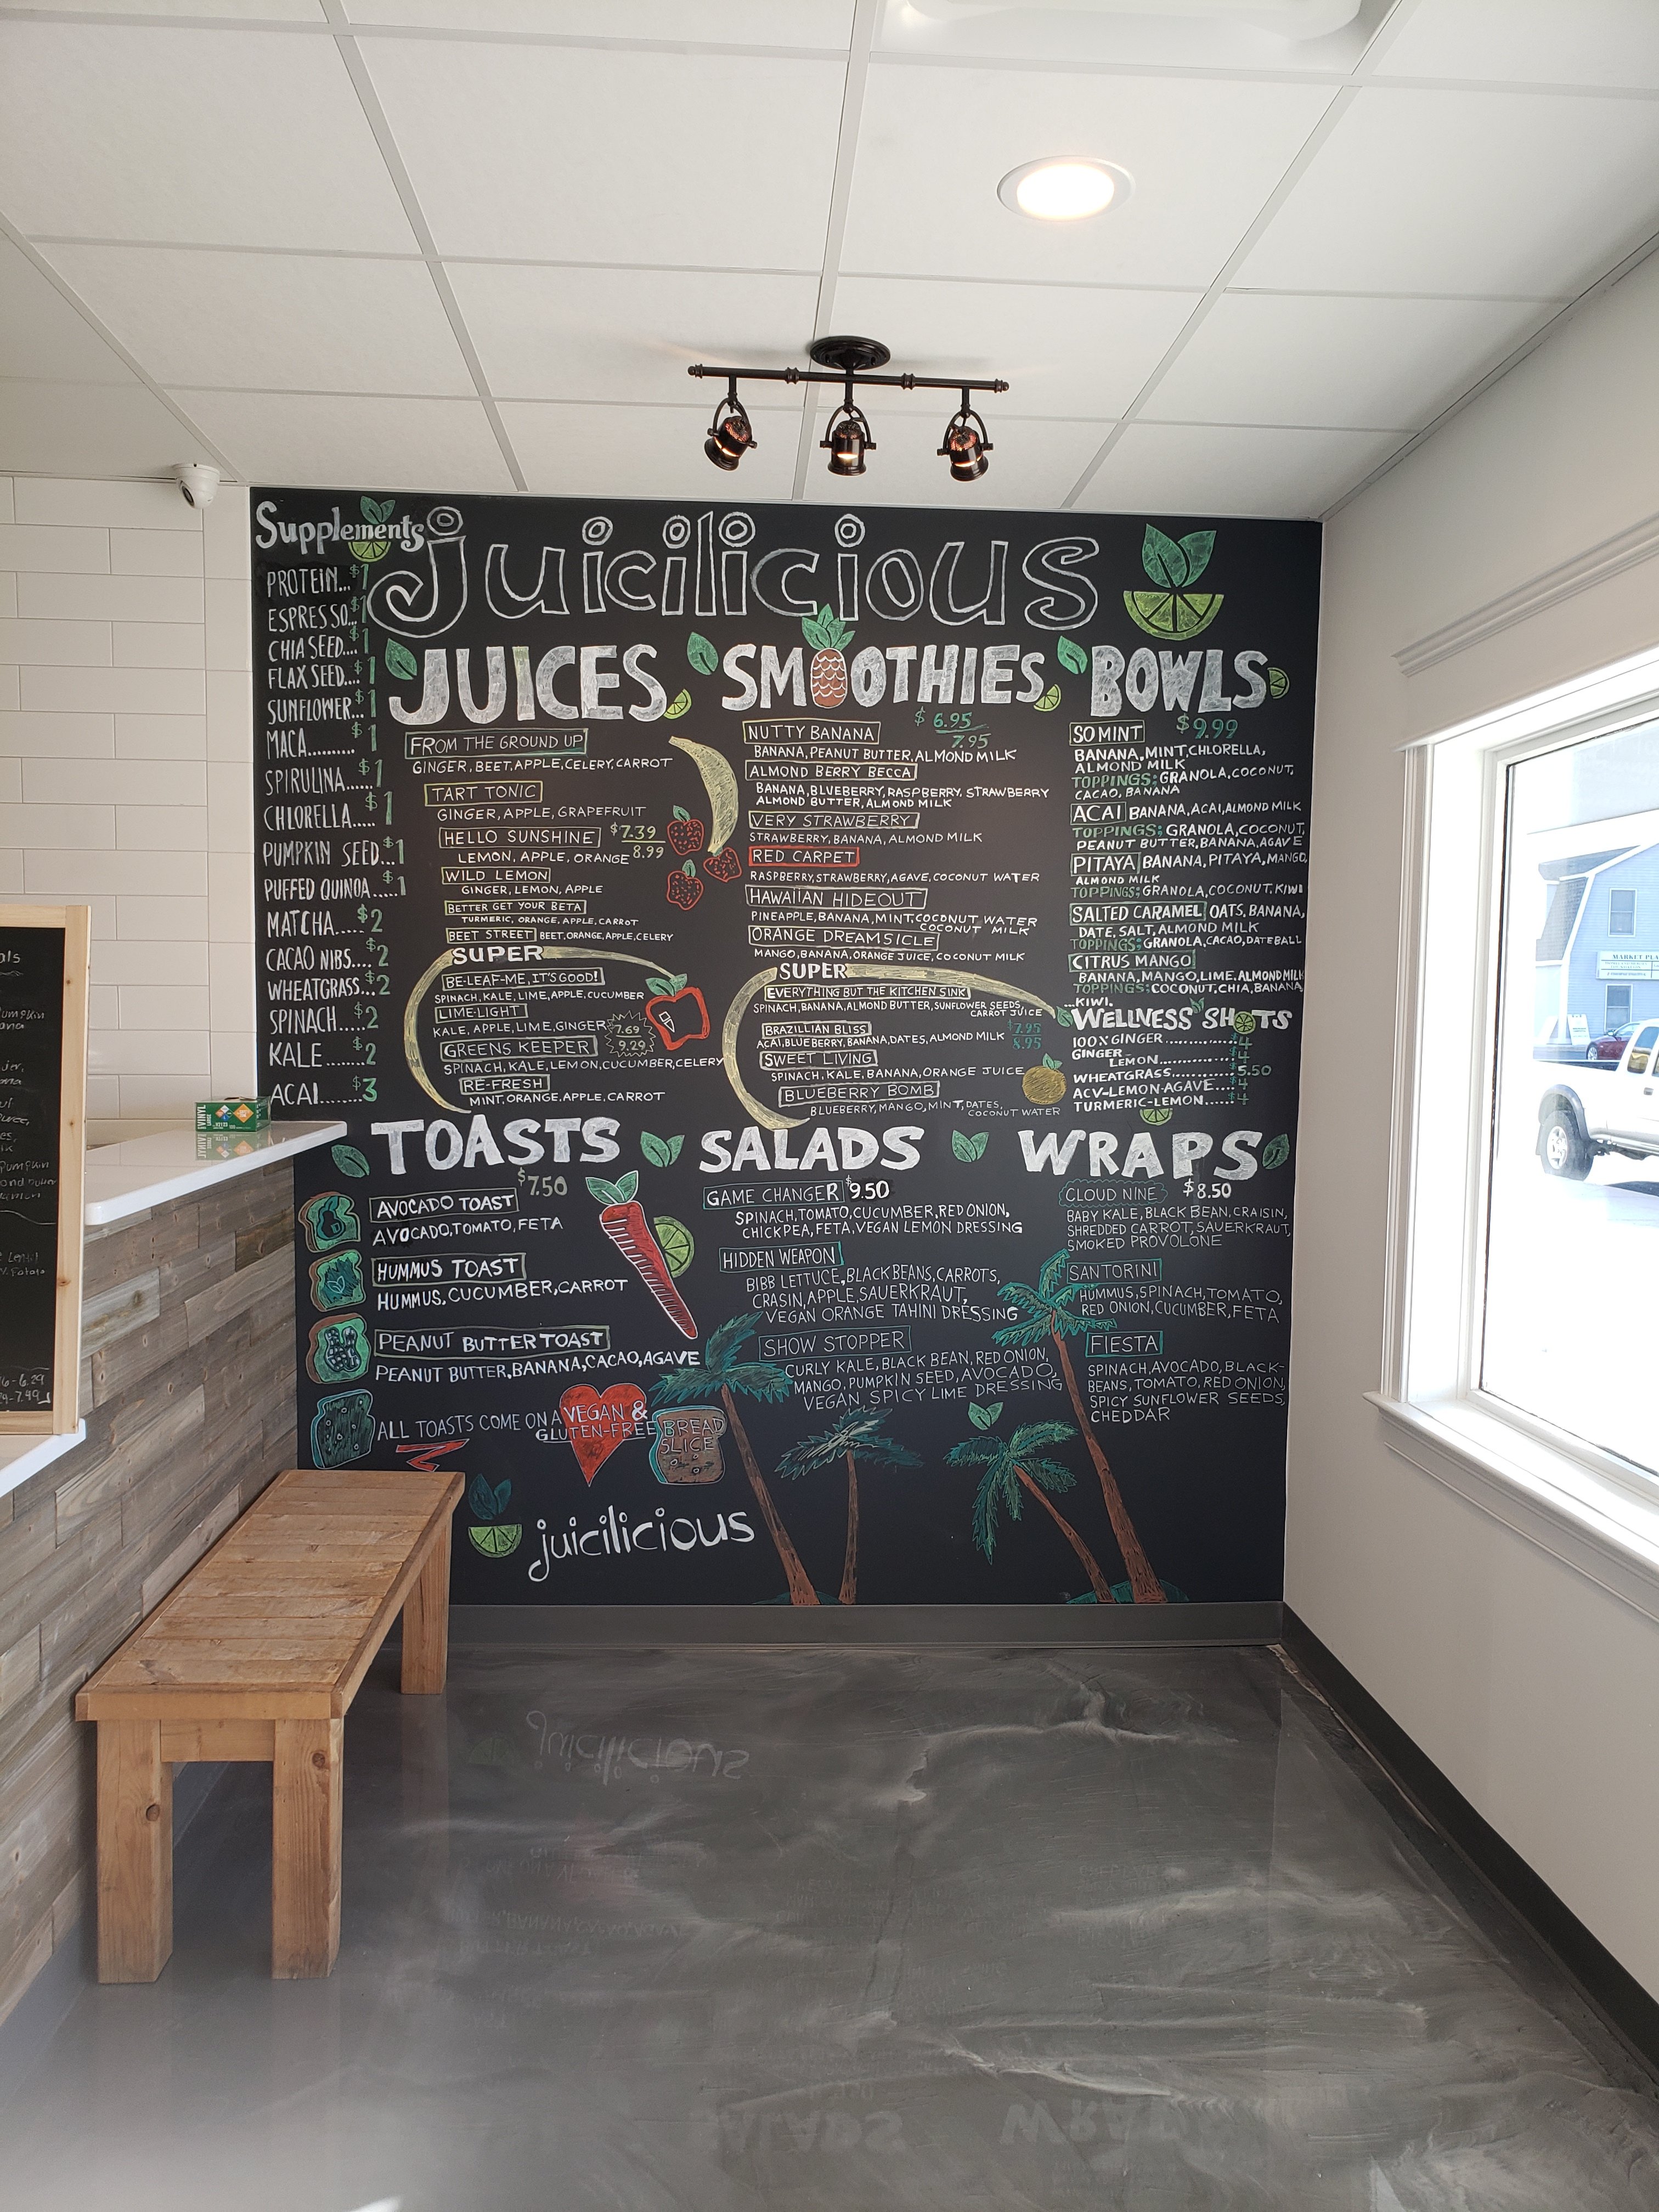 Supplements
PROTEIN...$1
ESPRESSO...$1
CHIA SEED....$1
FLAX SEED....$1
SUNFLOWER...$1
MACA..........$1
SPIRULINA.....$1
CHLORELLA.....$1
PUMPKIN SEED...$1
PUFFED QUINOA....$1
MATCHA....$2
CACAO NIBS....$2
WHEATGRASS...$2
SPINACH.....$2
KALE.....$2
ACAI.......$3
juicilicious
JUICES
FROM THE GROUND UP
GINGER, BEET, APPLE, CELERY, CARROT
TART TONIC
GINGER, APPLE, GRAPEFRUIT
HELLO SUNSHINE $7.39
LEMON, APPLE, ORANGE 8.99
WILD LEMON
GINGER, LEMON, APPLE
BETTER GET YOUR BETA
TURMERIC, ORANGE, APPLE, CARROT
BEET STREET BEET, ORANGE, APPLE, CELERY
SUPER
BE-LEAF-ME, IT'S GOOD!
SPINACH, KALE, LIME, APPLE, CUCUMBER
LIME-LIGHT
KALE, APPLE, LIME, GINGER 7.69
9.29
GREENS KEEPER
SPINACH, KALE, LEMON, CUCUMBER, CELERY
RE-FRESH
MINT, ORANGE, APPLE, CARROT
SMOOTHIES
$6.95
7.95
NUTTY BANANA
BANANA, PEANUT BUTTER, ALMOND MILK
ALMOND BERRY BECCA
BANANA, BLUEBERRY, RASPBERRY, STRAWBERRY
ALMOND BUTTER, ALMOND MILK
VERY STRAWBERRY
STRAWBERRY, BANANA, ALMOND MILK
RED CARPET
RASPBERRY, STRAWBERRY, AGAVE, COCONUT WATER
HAWAIIAN HIDEOUT
PINEAPPLE, BANANA, MINT, COCONUT WATER
COCONUT MILK
ORANGE DREAMSICLE
MANGO, BANANA, ORANGE JUICE, COCONUT MILK
SUPER
EVERYTHING BUT THE KITCHEN SINK
SPINACH, BANANA, ALMOND BUTTER, SUNFLOWER SEEDS,
CARROT JUICE
BRAZILLIAN BLISS $7.95
ACAI, BLUEBERRY, BANANA, DATES, ALMOND MILK 8.95
SWEET LIVING
SPINACH, KALE, BANANA, ORANGE JUICE
BLUEBERRY BOMB
BLUEBERRY, MANGO, MINT, DATES,
COCONUT WATER
BOWLS
SO MINT $9.99
BANANA, MINT, CHLORELLA,
ALMOND MILK
TOPPINGS: GRANOLA, COCONUT,
CACAO, BANANA
ACAI BANANA, ACAI, ALMOND MILK
TOPPINGS: GRANOLA, COCONUT,
PEANUT BUTTER, BANANA, AGAVE
PITAYA BANANA, PITAYA, MANGO,
ALMOND MILK
TOPPINGS: GRANOLA, COCONUT, KIWI
SALTED CARAMEL OATS, BANANA,
DATE, SALT, ALMOND MILK
TOPPINGS: GRANOLA, CACAO, DATEBALL
CITRUS MANGO
BANANA, MANGO, LIME, ALMOND MILK
TOPPINGS: COCONUT, CHIA, BANANA,
...KIWI.
WELLNESS SHOTS
100% GINGER..............4
GINGER-
LEMON..............4
WHEATGRASS...............5.50
ACV-LEMON-AGAVE....$4
TURMERIC-LEMON......$4
TOASTS
$7.50
AVOCADO TOAST
AVOCADO, TOMATO, FETA
HUMMUS TOAST
HUMMUS, CUCUMBER, CARROT
PEANUT BUTTER TOAST
PEANUT BUTTER, BANANA, CACAO, AGAVE
ALL TOASTS COME ON A VEGAN &
GLUTEN-FREE BREAD
SLICE
SALADS
GAME CHANGER $9.50
SPINACH, TOMATO, CUCUMBER, RED ONION,
CHICKPEA, FETA, VEGAN LEMON DRESSING
HIDDEN WEAPON
BIBB LETTUCE, BLACK BEANS, CARROTS,
CRASIN, APPLE, SAUERKRAUT,
VEGAN ORANGE TAHINI DRESSING
SHOW STOPPER
CURLY KALE, BLACK BEAN, RED ONION,
MANGO, PUMPKIN SEED, AVOCADO,
VEGAN SPICY LIME DRESSING
WRAPS
CLOUD NINE $8.50
BABY KALE, BLACK BEAN, CRAISIN,
SHREDDED CARROT, SAUERKRAUT,
SMOKED PROVOLONE
SANTORINI
HUMMUS, SPINACH, TOMATO,
RED ONION, CUCUMBER, FETA
FIESTA
SPINACH, AVOCADO, BLACK-
BEANS, TOMATO, RED ONION,
SPICY SUNFLOWER SEEDS,
CHEDDAR
juicilicious
VINYL
als
Pumpkin
Pumpkin
6-6.29
-7.49
MARKET PLA